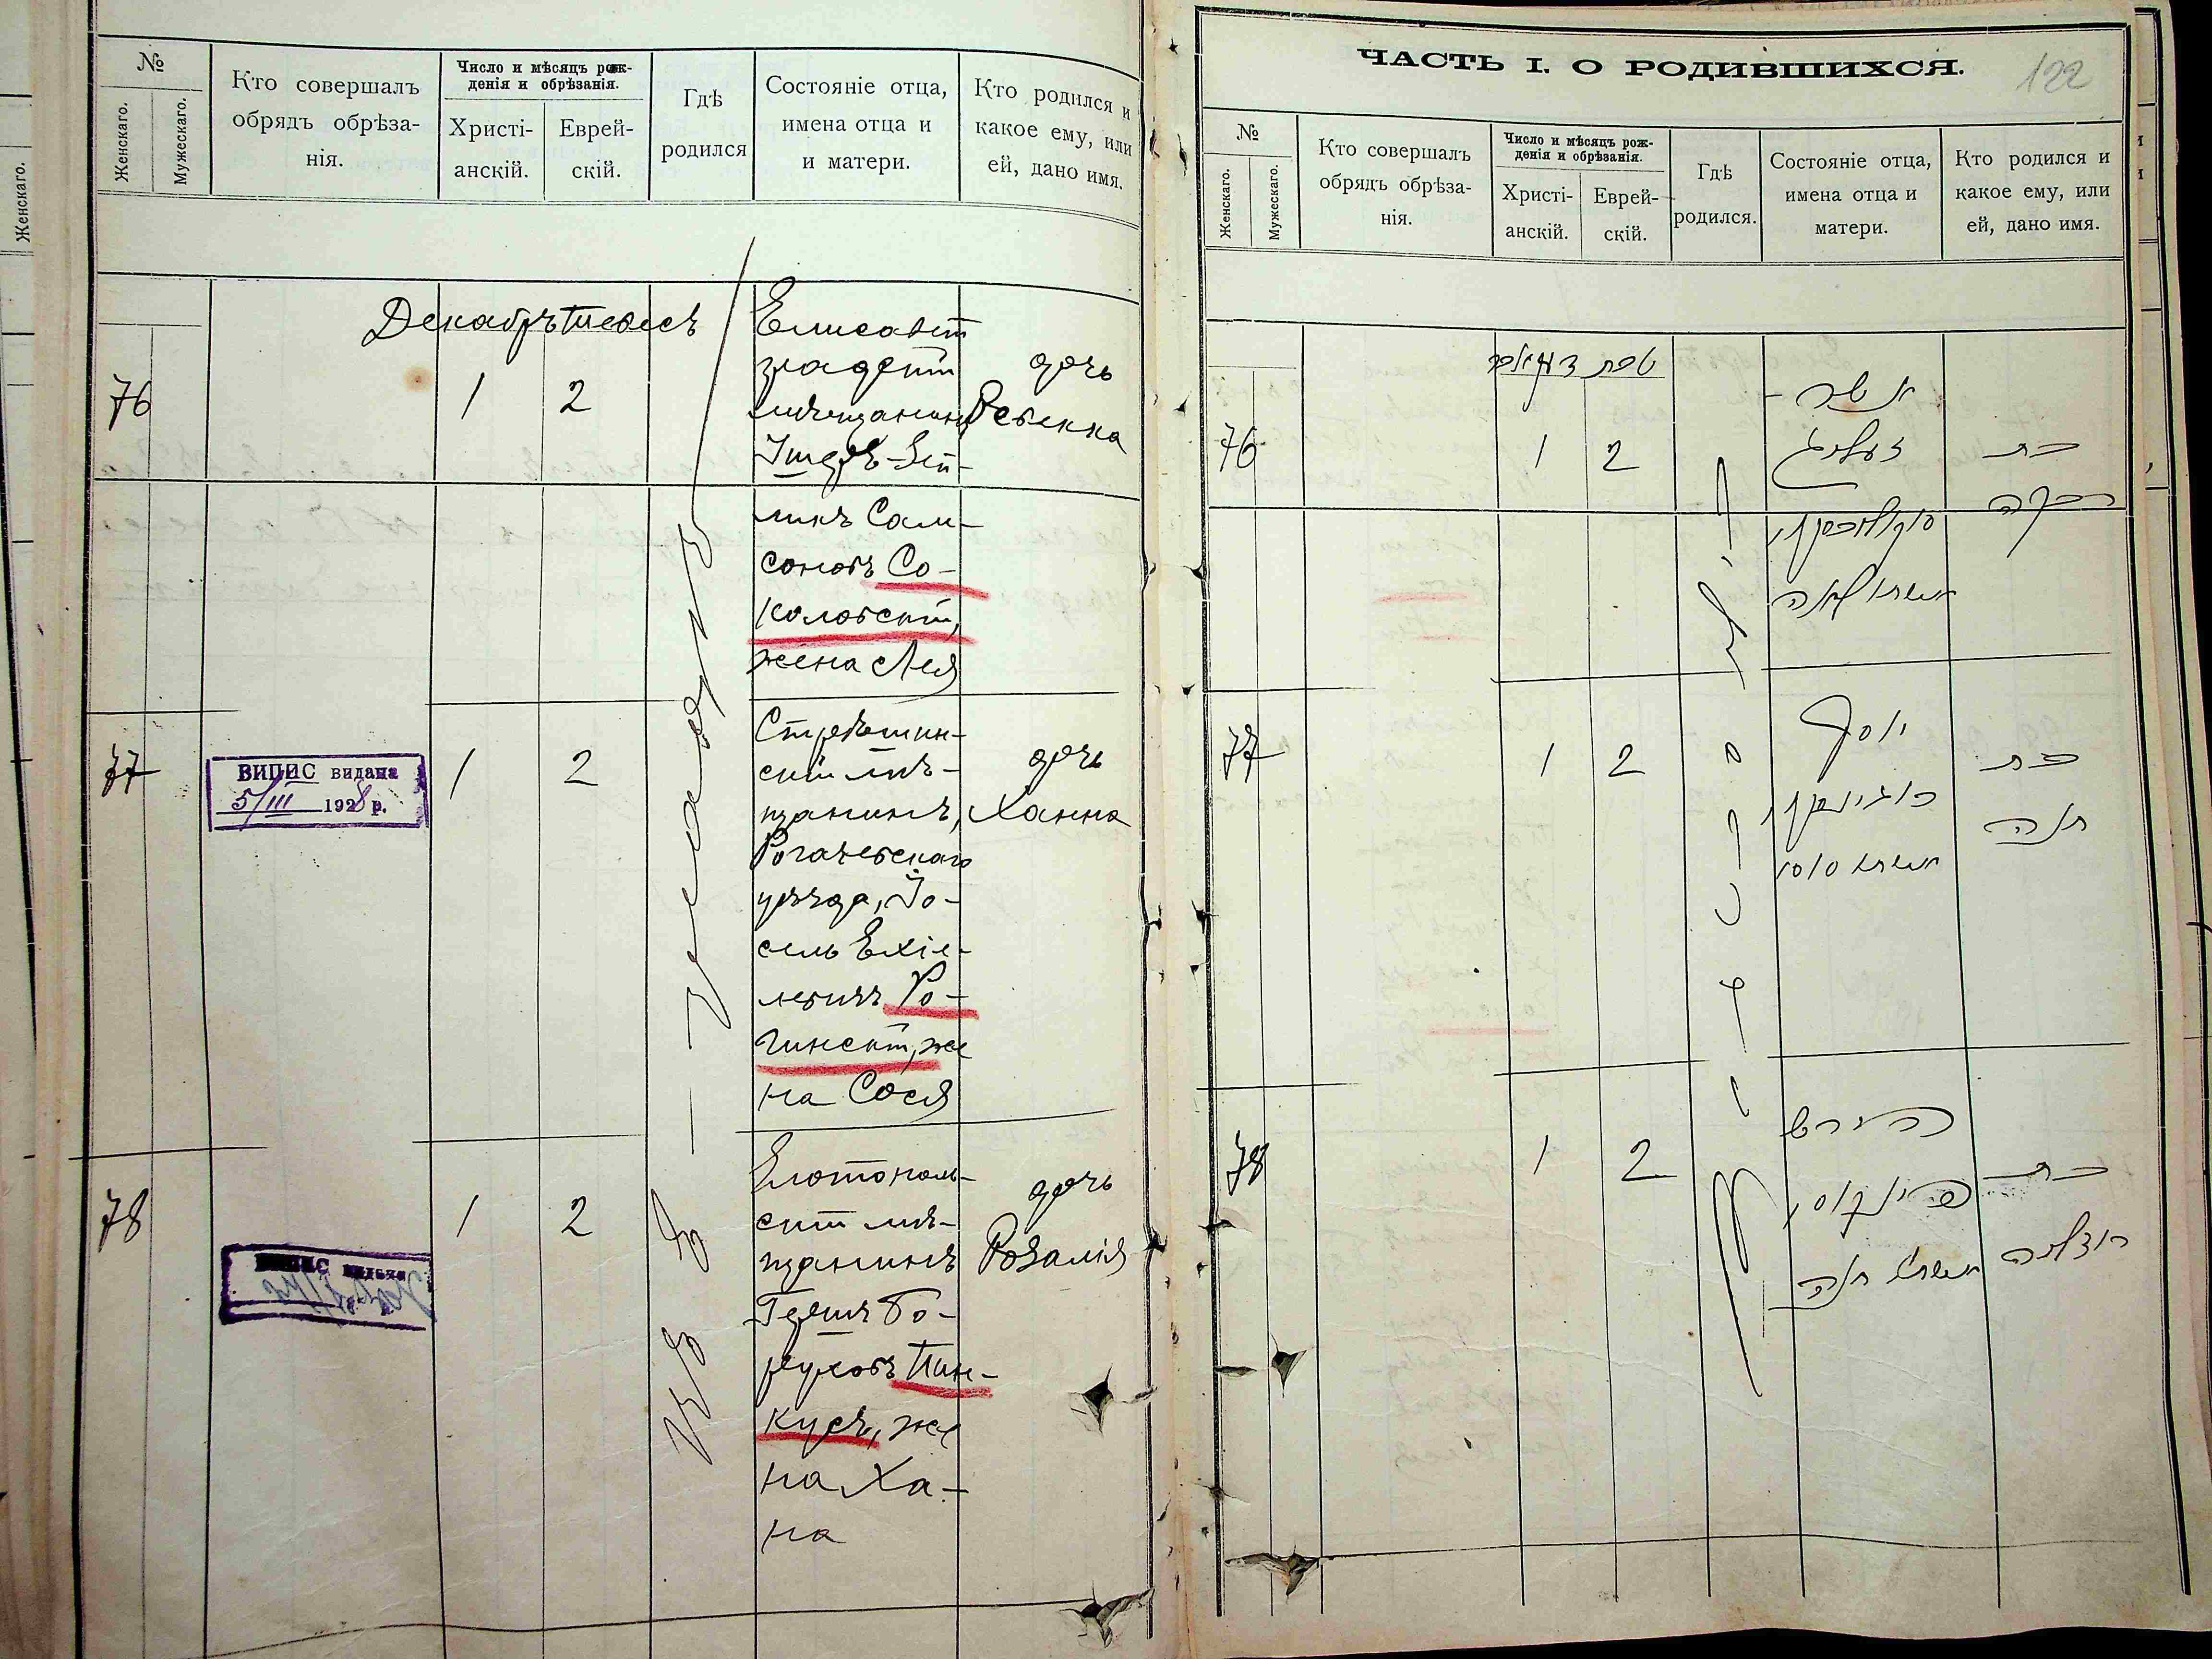 №
Женскаго.
Мужескаго.
Кто совершалъ
обрядъ обрѣза-
нія.
Число и мѣсяцъ рож-
денія и обрѣзанія.
Христі-
анскій.
Еврей-
скій.
Гдѣ
родился
Состояніе отца,
имена отца и
и матери.
Кто родился и
какое ему, или
ей, дано имя.
Женскаго.
Декабрь Тевесъ
76
1
2
Елисавет
градскій
мѣщанинъ
Ицекъ-Зей-
ликъ Сам-
соновъ Со-
коловскій,
жена Лея
дочь
Ревекка
77
ВИПИС видана
5/III 1928 р.
1
2
Стрѣшин-
скій мѣ-
щанинъ,
Рогачевскаго
уѣзда, Іо-
сель Ехіе-
левичъ Ро-
гинскій, же
на Сося
дочь
Ханна
78
1
2
Златополь-
скій мѣ-
щанинъ
Гершъ Бо-
руховъ Пин-
кусъ, же
на Ха-
на
дочь
Розалія
ЧАСТЬ I. О РОДИВШИХСЯ.
122
№
Женскаго.
Мужескаго.
Кто совершалъ
обрядъ обрѣза-
нія.
Число и мѣсяцъ рож-
денія и обрѣзанія.
Христі-
анскій.
Еврей-
скій.
Гдѣ
родился.
Состояніе отца,
имена отца и
матери.
Кто родился и
какое ему, или
ей, дано имя.
טבת דעקאבר
76
1
2
זעליג
סוקאלאווסקי,
אשתו לאה
בת
רבקה
77
1
2
יוסף
ראגינסקי
אשתו סוסי
בת
חנה
78
1
2
הירש
פינקוס,
אשתו חנה
בת
רוזליה